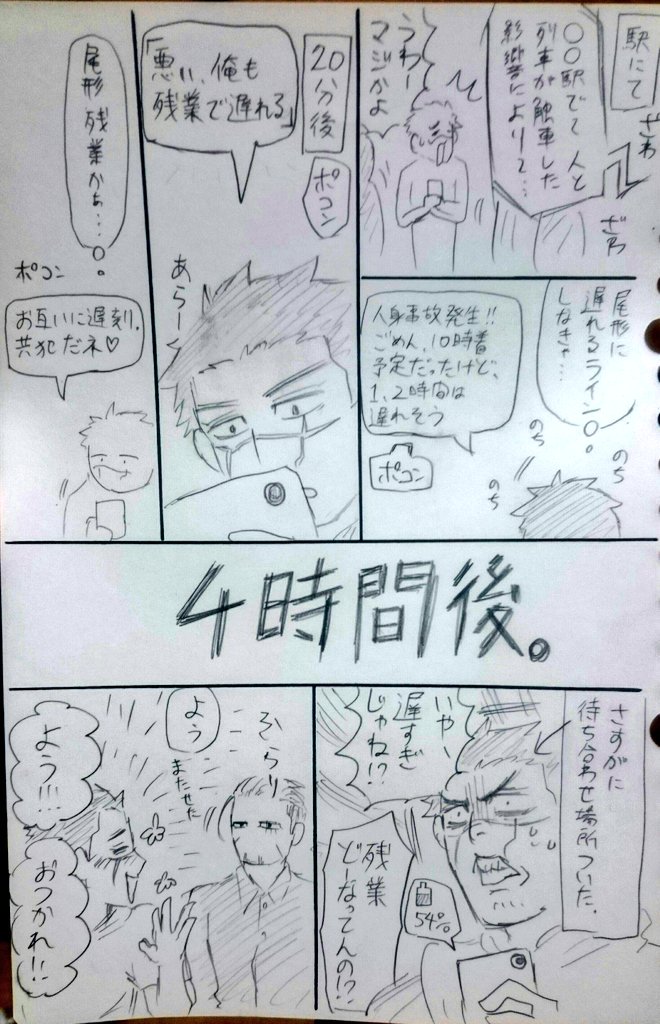 駅にて
ざわ
ざわ
○○駅でて人と
列車が触車した
影響によりて…
うわー
マジかよ
尾形に
遅れるライン○。
しなきゃ…
のち
のち
のち
人身事故発生!!
ごめん、10時着
予定だったけど、
1、2時間は
遅れそう
ポコン
20分後
ポコン
「悪い、俺も
残業で遅れる」
あらー
尾形 残業かぁ…○。
ポコン
お互いに遅刻、
共犯だネ♡
4時間後。
さすがに
待ち合わせ場所ついた。
いやー
遅すぎ
じゃね!?
54%
残業
どーなってんの!?
ぬらり
よう
またせた
よう!!!
おつかれ!!